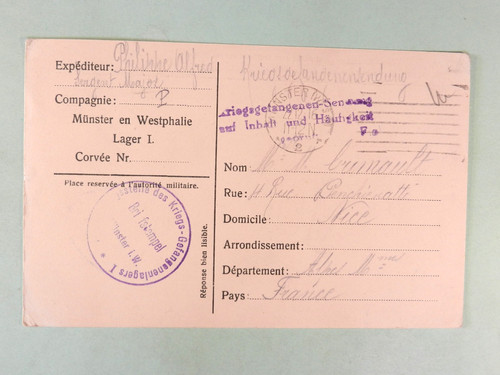 Expéditeur: Philippe Alfred
Sergent Major
Compagnie: I
Münster en Westphalie
Lager I.
Corvée Nr.
Place reservée à l'autorité militaire.
des Kriegs-Gefangenenlagers I
Münster i. W.
Réponse bien lisible.
Kriegsgefangenensendung
Kriegsgefangenen-Sendung
auf Inhalt und Häufigkeit
Nom M.
Rue: 4 Rue
Domicile: Nice
Arrondissement:
Département: Alpes Mmes
Pays: France